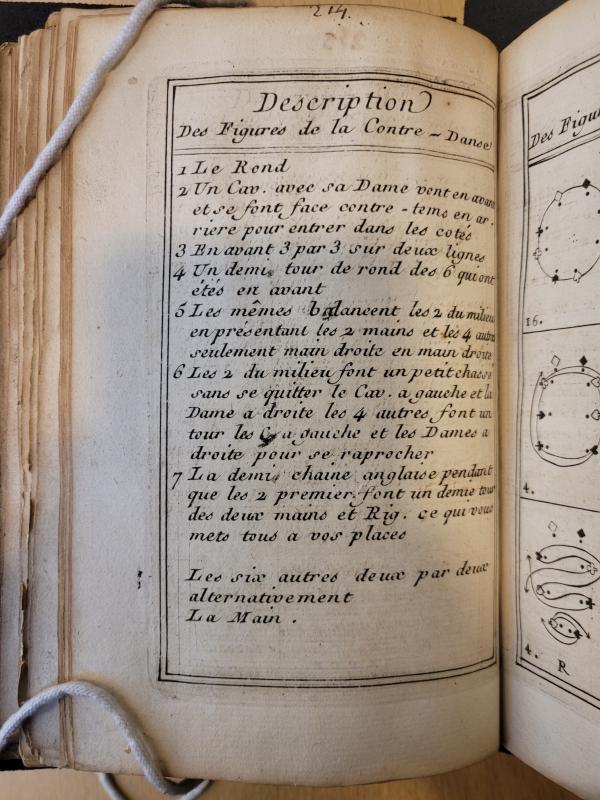 214.
Description
Des Figures de la Contre - Danse
1 Le Rond
2 Un Cav. avec sa Dame vont en avant
et se font face contre - tems en ar-
riere pour entrer dans les cotés
3 En avant 3 par 3 sur deux lignes
4 Un demi tour de rond des 6 qui ont
étés en avant
5 Les mêmes balancent les 2 du milieu
en présentant les 2 mains et les 4 autres
seulement main droite en main droite
6 Les 2 du milieu font un petit chassé
sans se quitter le Cav. a gauche et la
Dame a droite les 4 autres font un
tour les a gauche et les Dames a
droite pour se raprocher
7 La demi chaine anglaise pendant
que les 2 premier font un demie tour
des deux mains et Rig. ce qui vous
mets tous a vos places
Les six autres deux par deux
alternativement
La Main .
Des Figu
16.
4.
4. R